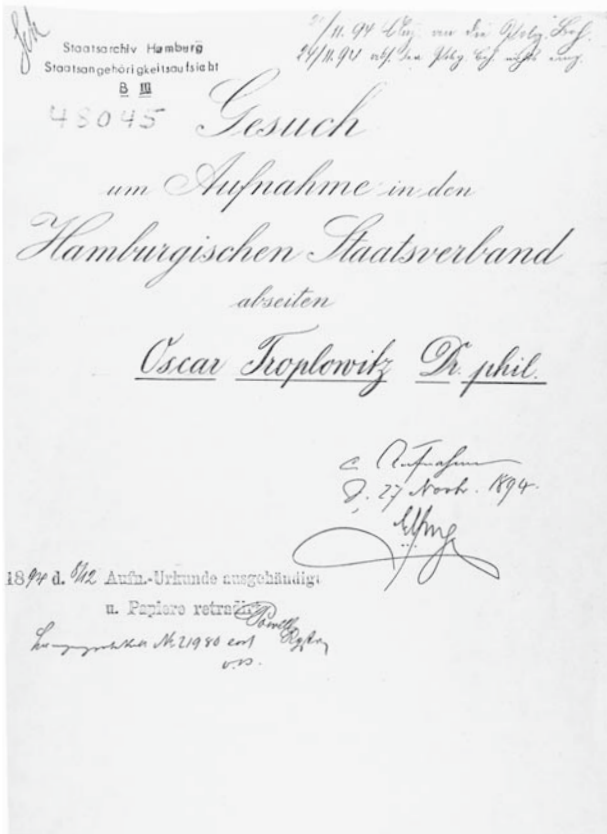 Staatsarchiv Hamburg
Staatsangehörigkeitsaufsicht
B III
48045
/11. 94 an die
24/11. 94
Gesuch
um Aufnahme in den
Hamburgischen Staatsverband
abseiten
Oscar Troplowitz Dr. phil.
Aufnahme
d. 27 Novbr. 1894.
1894 d. 8/12 Aufn.-Urkunde ausgehändigt
u. Papiere retradirt